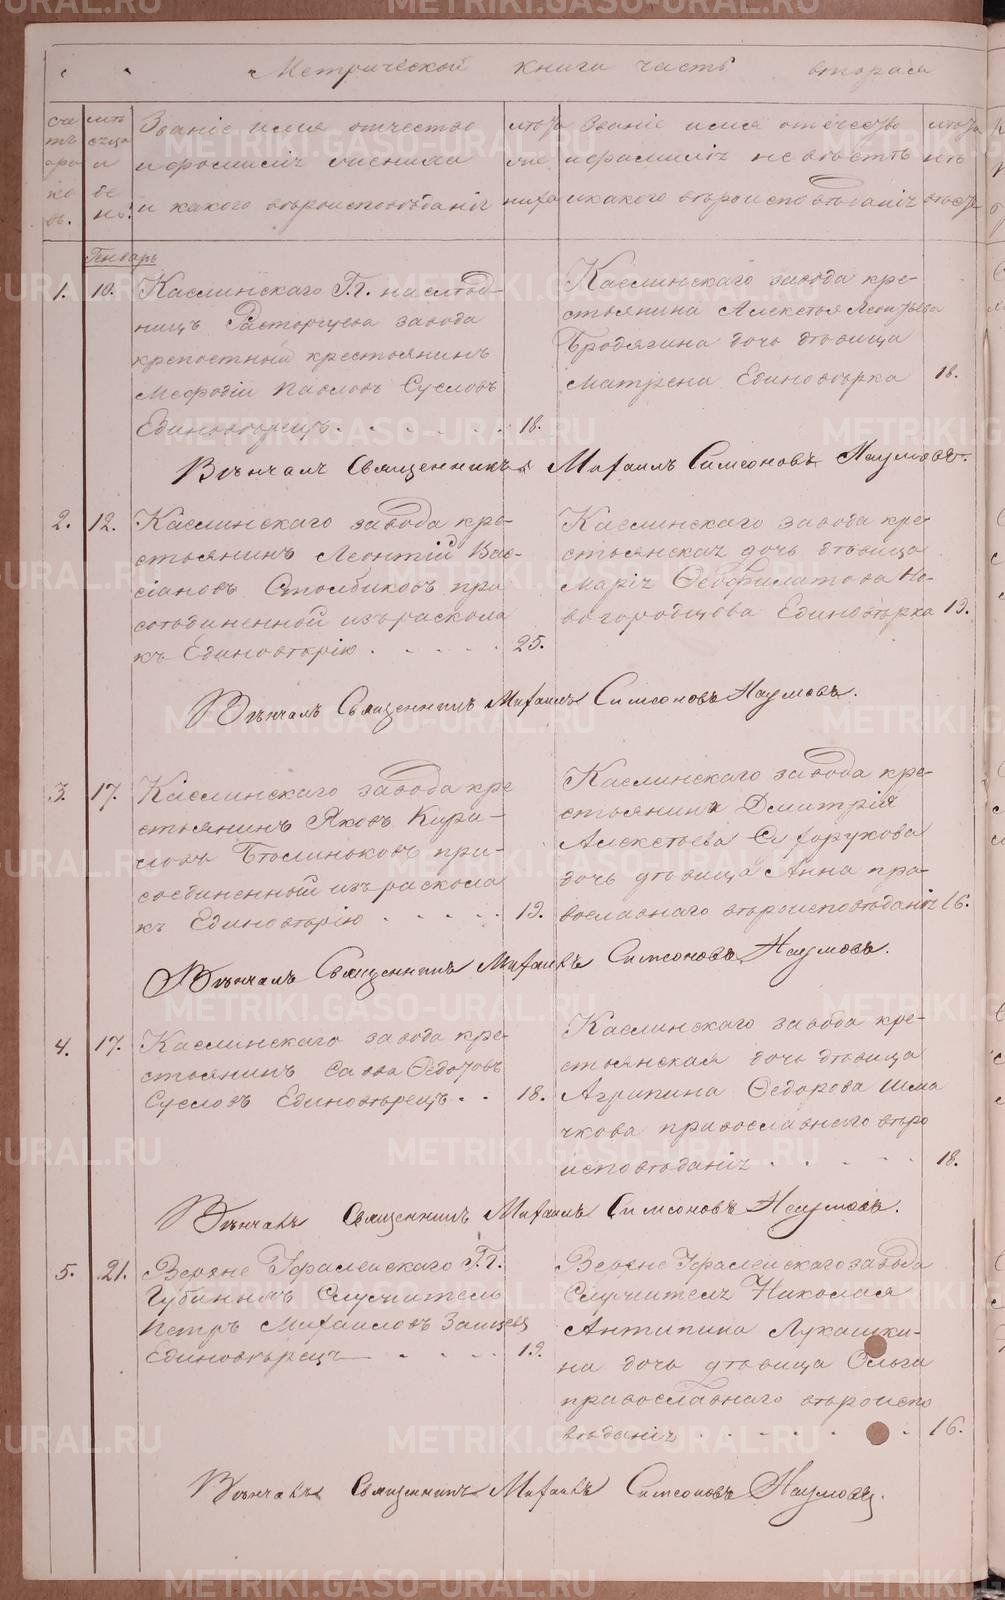 Метрической книги часть вторая
счетъ браковъ.
мѣсяцъ и день.
Званіе имя отчество
и фамиліе жениха
и какого вѣроисповѣданія
лѣта
жениха
Званіе имя отчество
и фамиліе невѣсты
и какого вѣроисповѣданія
лѣта
невѣсты
Генварь
1. 10. Каслинскаго Г.г. наслѣд-
ницъ Расторгуева завода
крепостный крестьянинъ
Мефодій Павловъ Сусловъ
Единовѣрецъ. . . . . . . 18.
Каслинскаго завода кре-
стьянина Алексѣя Леонтьева
Бродягина дочь дѣвица
Матрена Единовѣрка 18.
Вѣнчалъ Священникъ Михаилъ Симеоновъ Наумовъ.
2. 12. Каслинскаго завода кре-
стьянинъ Леонтій Вас-
сіановъ Столбиковъ при
соединенной изъ раскола
къ Единовѣрію . . . . . 25.
Каслинскаго завода кре-
стьянская дочь дѣвица
Марія Ѳеофилатова Но-
вогородцова Единовѣрка 19.
Вѣнчалъ Священникъ Михаилъ Симеоновъ Наумовъ.
3. 17. Каслинскаго завода кре
стьянинъ Яковъ Кири-
ловъ при-
соединенный изъ раскола
къ Единовѣрію . . . . . 19.
Каслинскаго завода кре-
стьянина Дмитрія
Алексѣева
дочь дѣвица Анна пра-
вославнаго вѣроисповѣданія 16.
Вѣнчалъ Священникъ Михаилъ Симеоновъ Наумовъ.
4. 17. Каслинскаго завода кре-
стьянинъ Савва Ѳедотовъ
Сусловъ Единовѣрецъ. . . 18.
Каслинскаго завода кре-
стьянская дочь дѣвица
Агрипина Ѳедорова Шма
чкова православнаго вѣро
исповѣданія . . . . . 18.
Вѣнчалъ Священникъ Михаилъ Симеоновъ Наумовъ.
5. 21. Верхне Уфалейскаго Г.г.
Губиныхъ Служитель
Петръ Михаиловъ Заицевъ
Единовѣрецъ . . . . 19.
Верхне Уфалейскаго завода
Служителя Николая
Антипина Лукашки-
на дочь дѣвица Ольга
православнаго вѣроиспо
вѣданія . . . . . . 16.
Вѣнчалъ Священникъ Михаилъ Симеоновъ Наумовъ.
METRIKI.GASO-URAL.RU